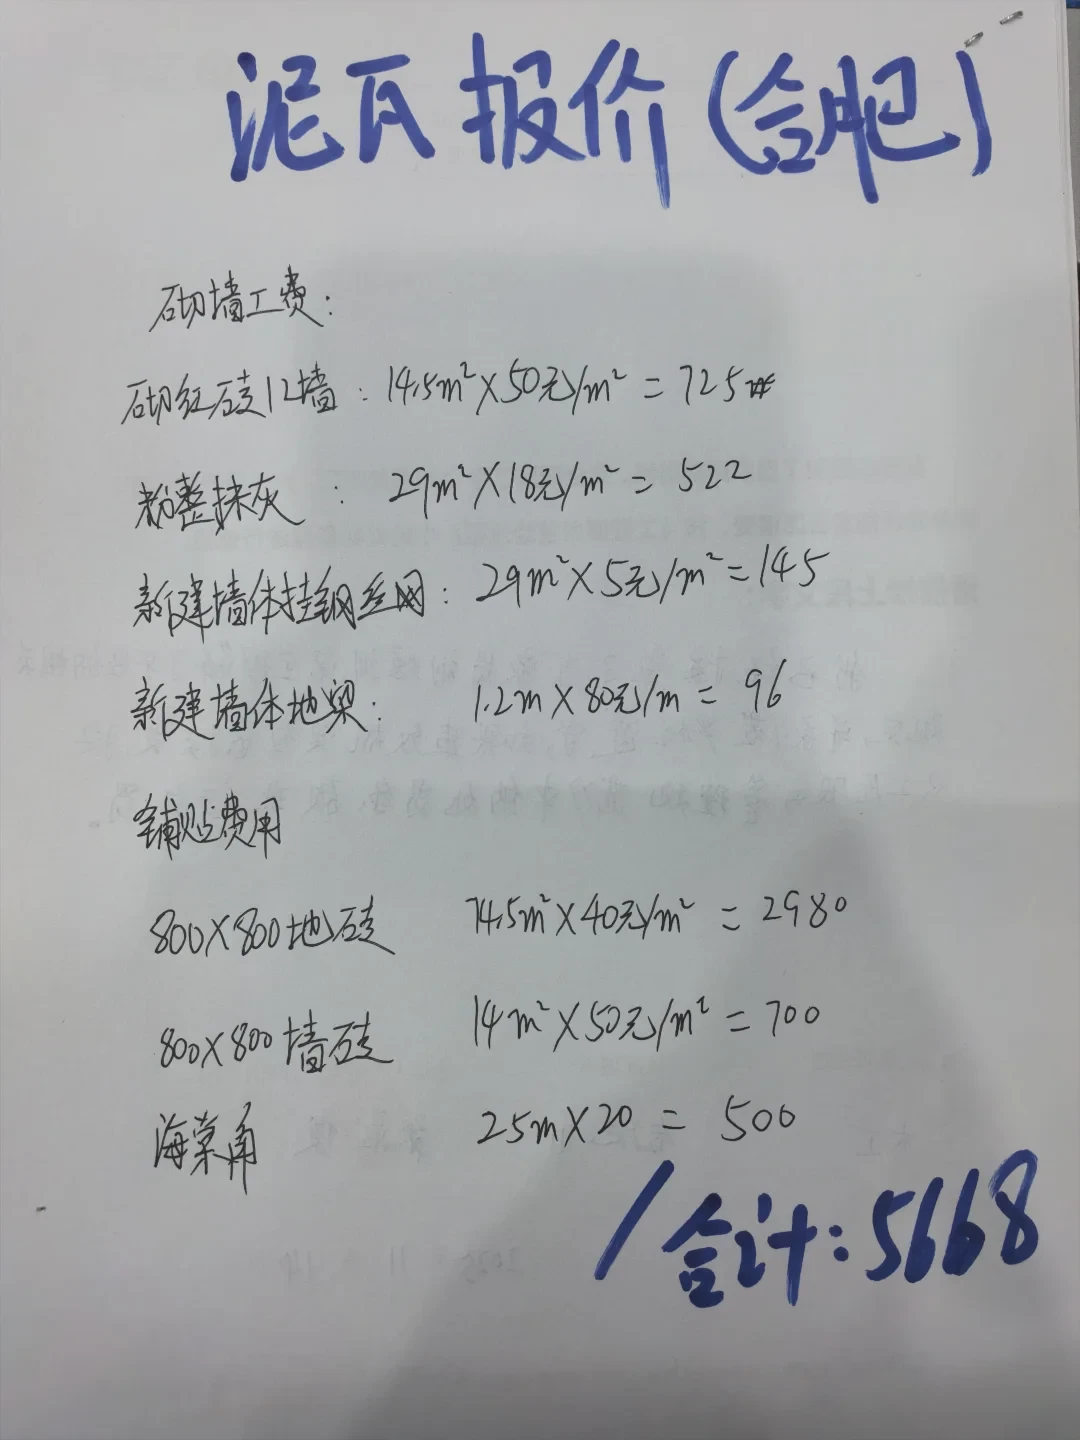 泥瓦报价(合肥)
砌墙工费:
砌红砖12墙:14.5m²×50元/m²=725
粉整抹灰:29m²×18元/m²=522
新建墙体挂钢丝网:29m²×5元/m²=145
新建墙体地梁:1.2m×80元/m=96
铺贴费用
800×800地砖 74.5m²×40元/m²=2980
800×800墙砖 14m²×50元/m²=700
海棠角 25m×20=500
/合计:5668